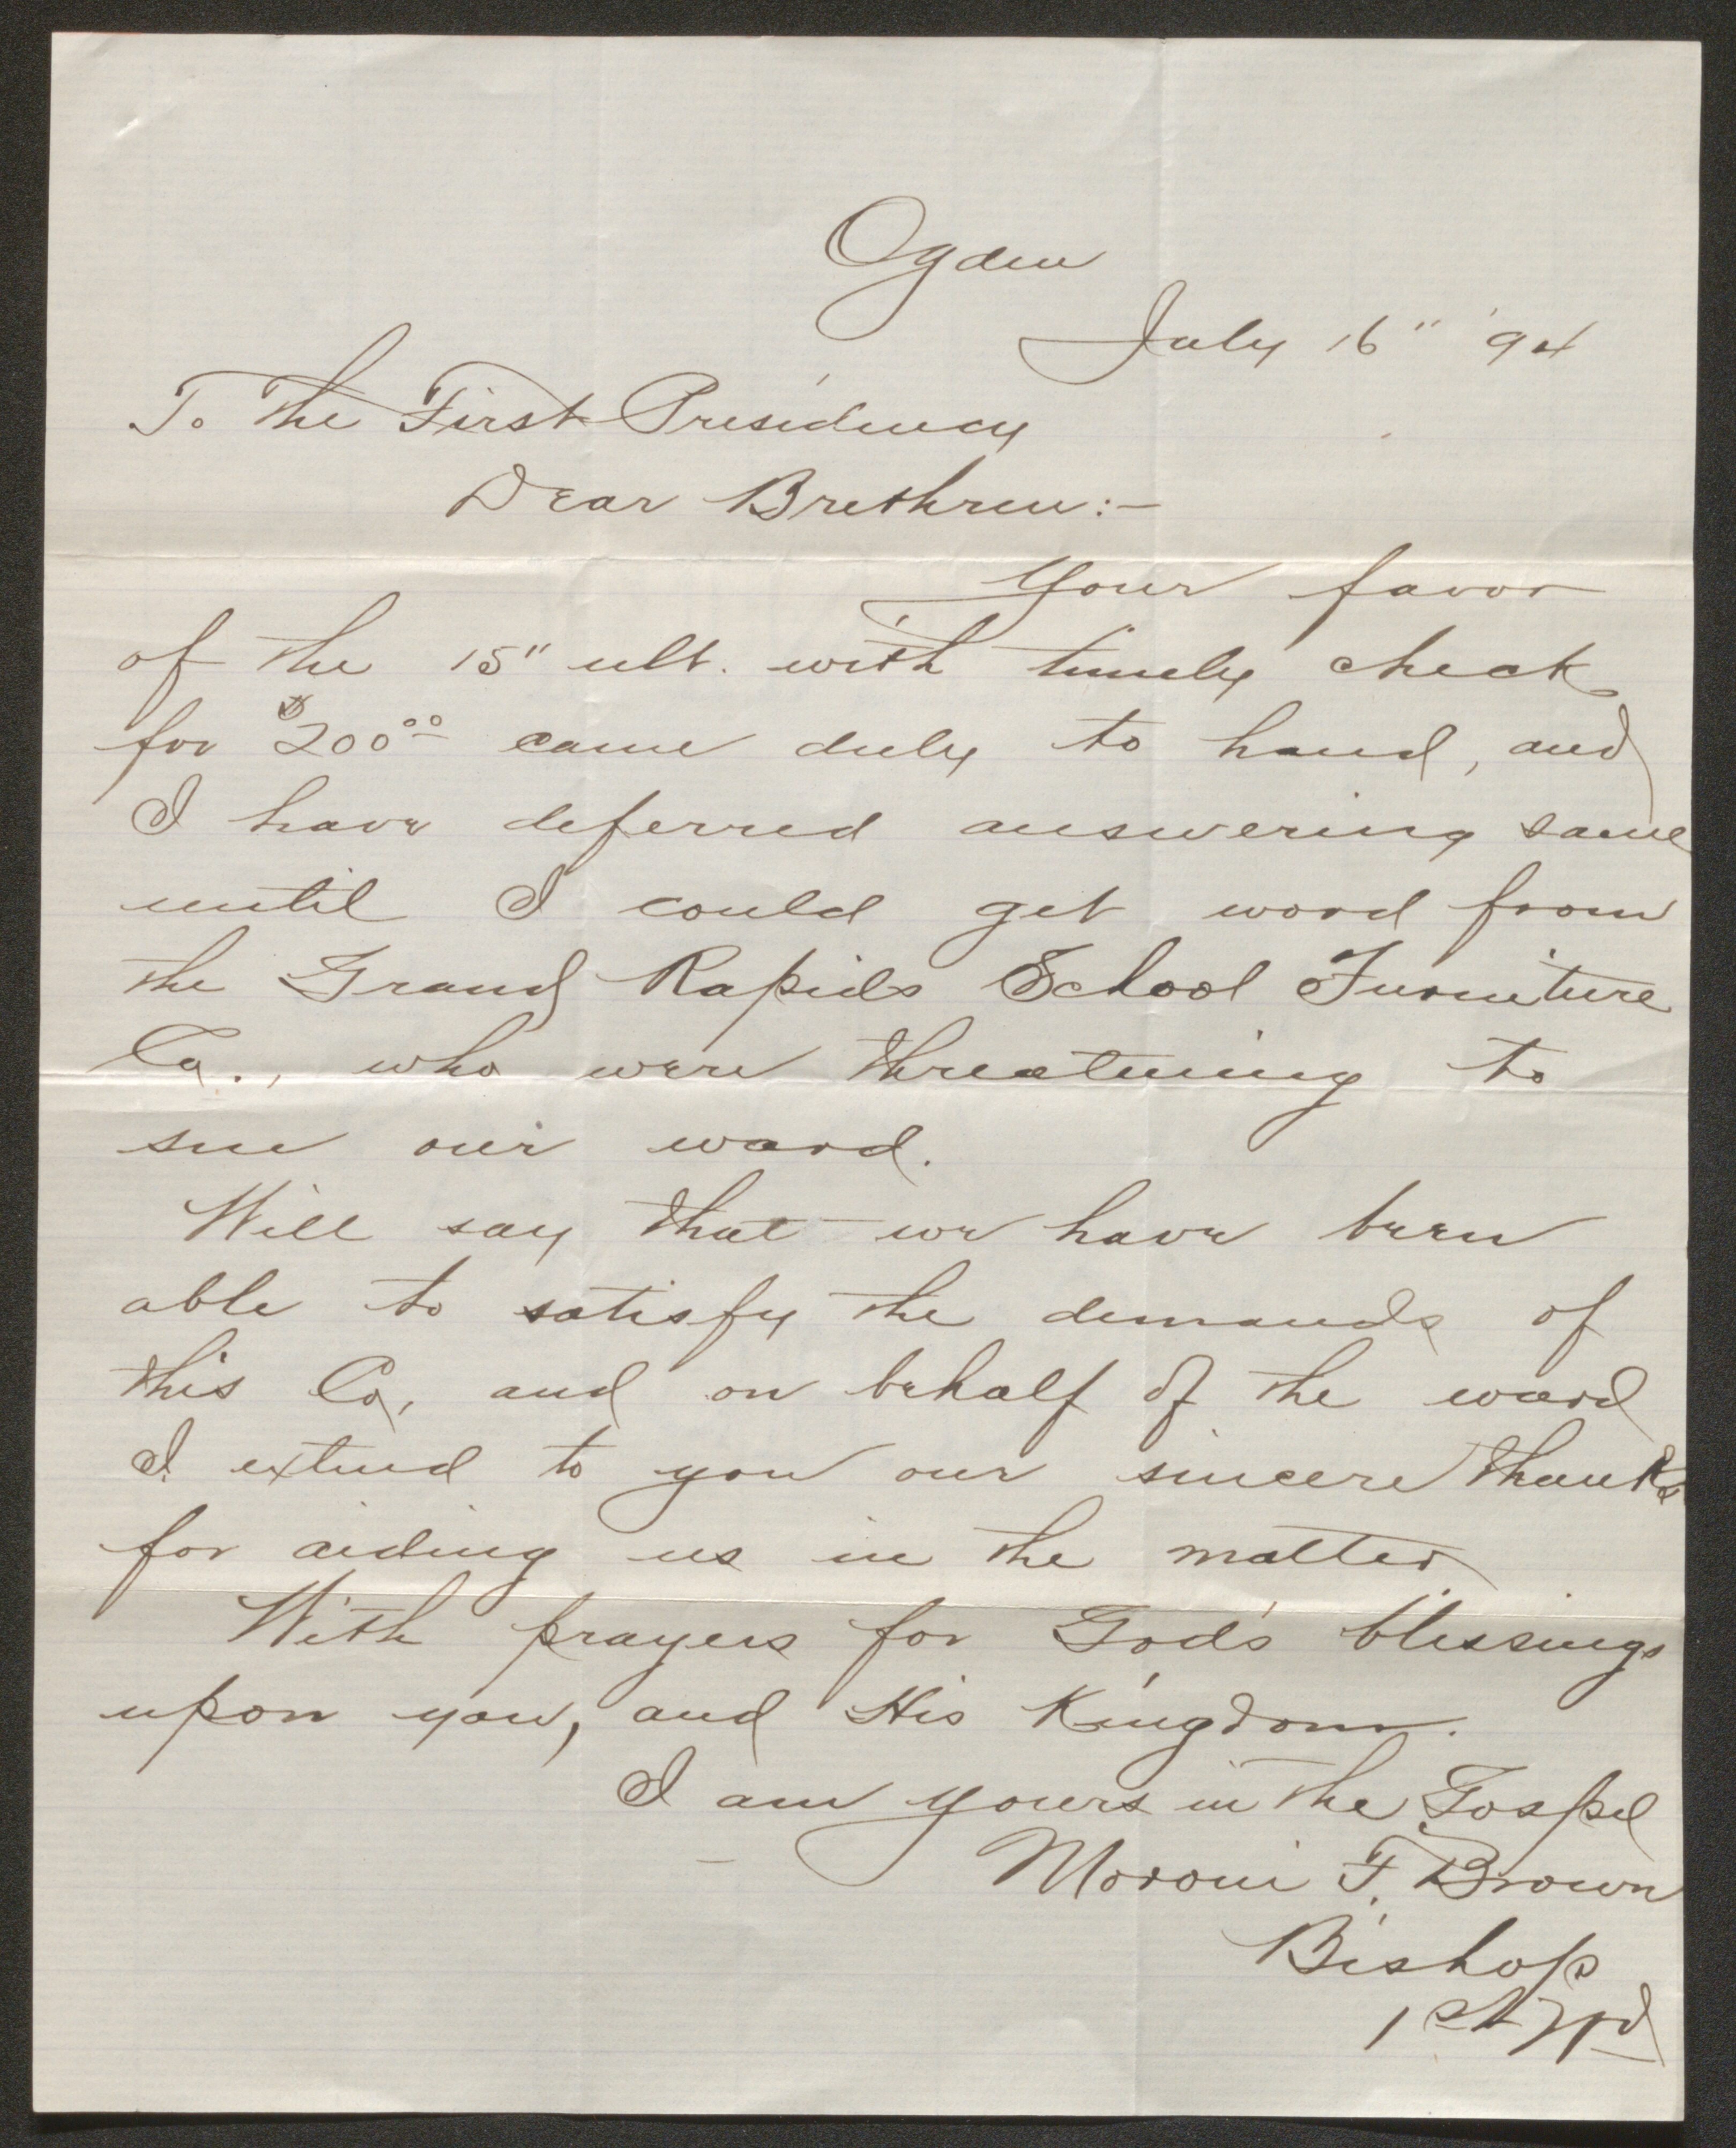 Ogden
July 16" '94
To The First Presidency
Dear Brethren:-
Your favor
of the 15" ult. with timely check
for $200.00 came duly to hand, and
I have deferred answering same
until I could get word from
the Grand Rapids School Furniture
Co., who were threatening to
sue our ward.
Will say that we have been
able to satisfy the demands of
this Co, and on behalf of the ward
I extend to you our sincere thanks
for aiding us in the matter
With prayers for God's blessings
upon you, and His Kingdom.
I am yours in the Gospel
Moroni F. Brown
Bishop
1st Wd